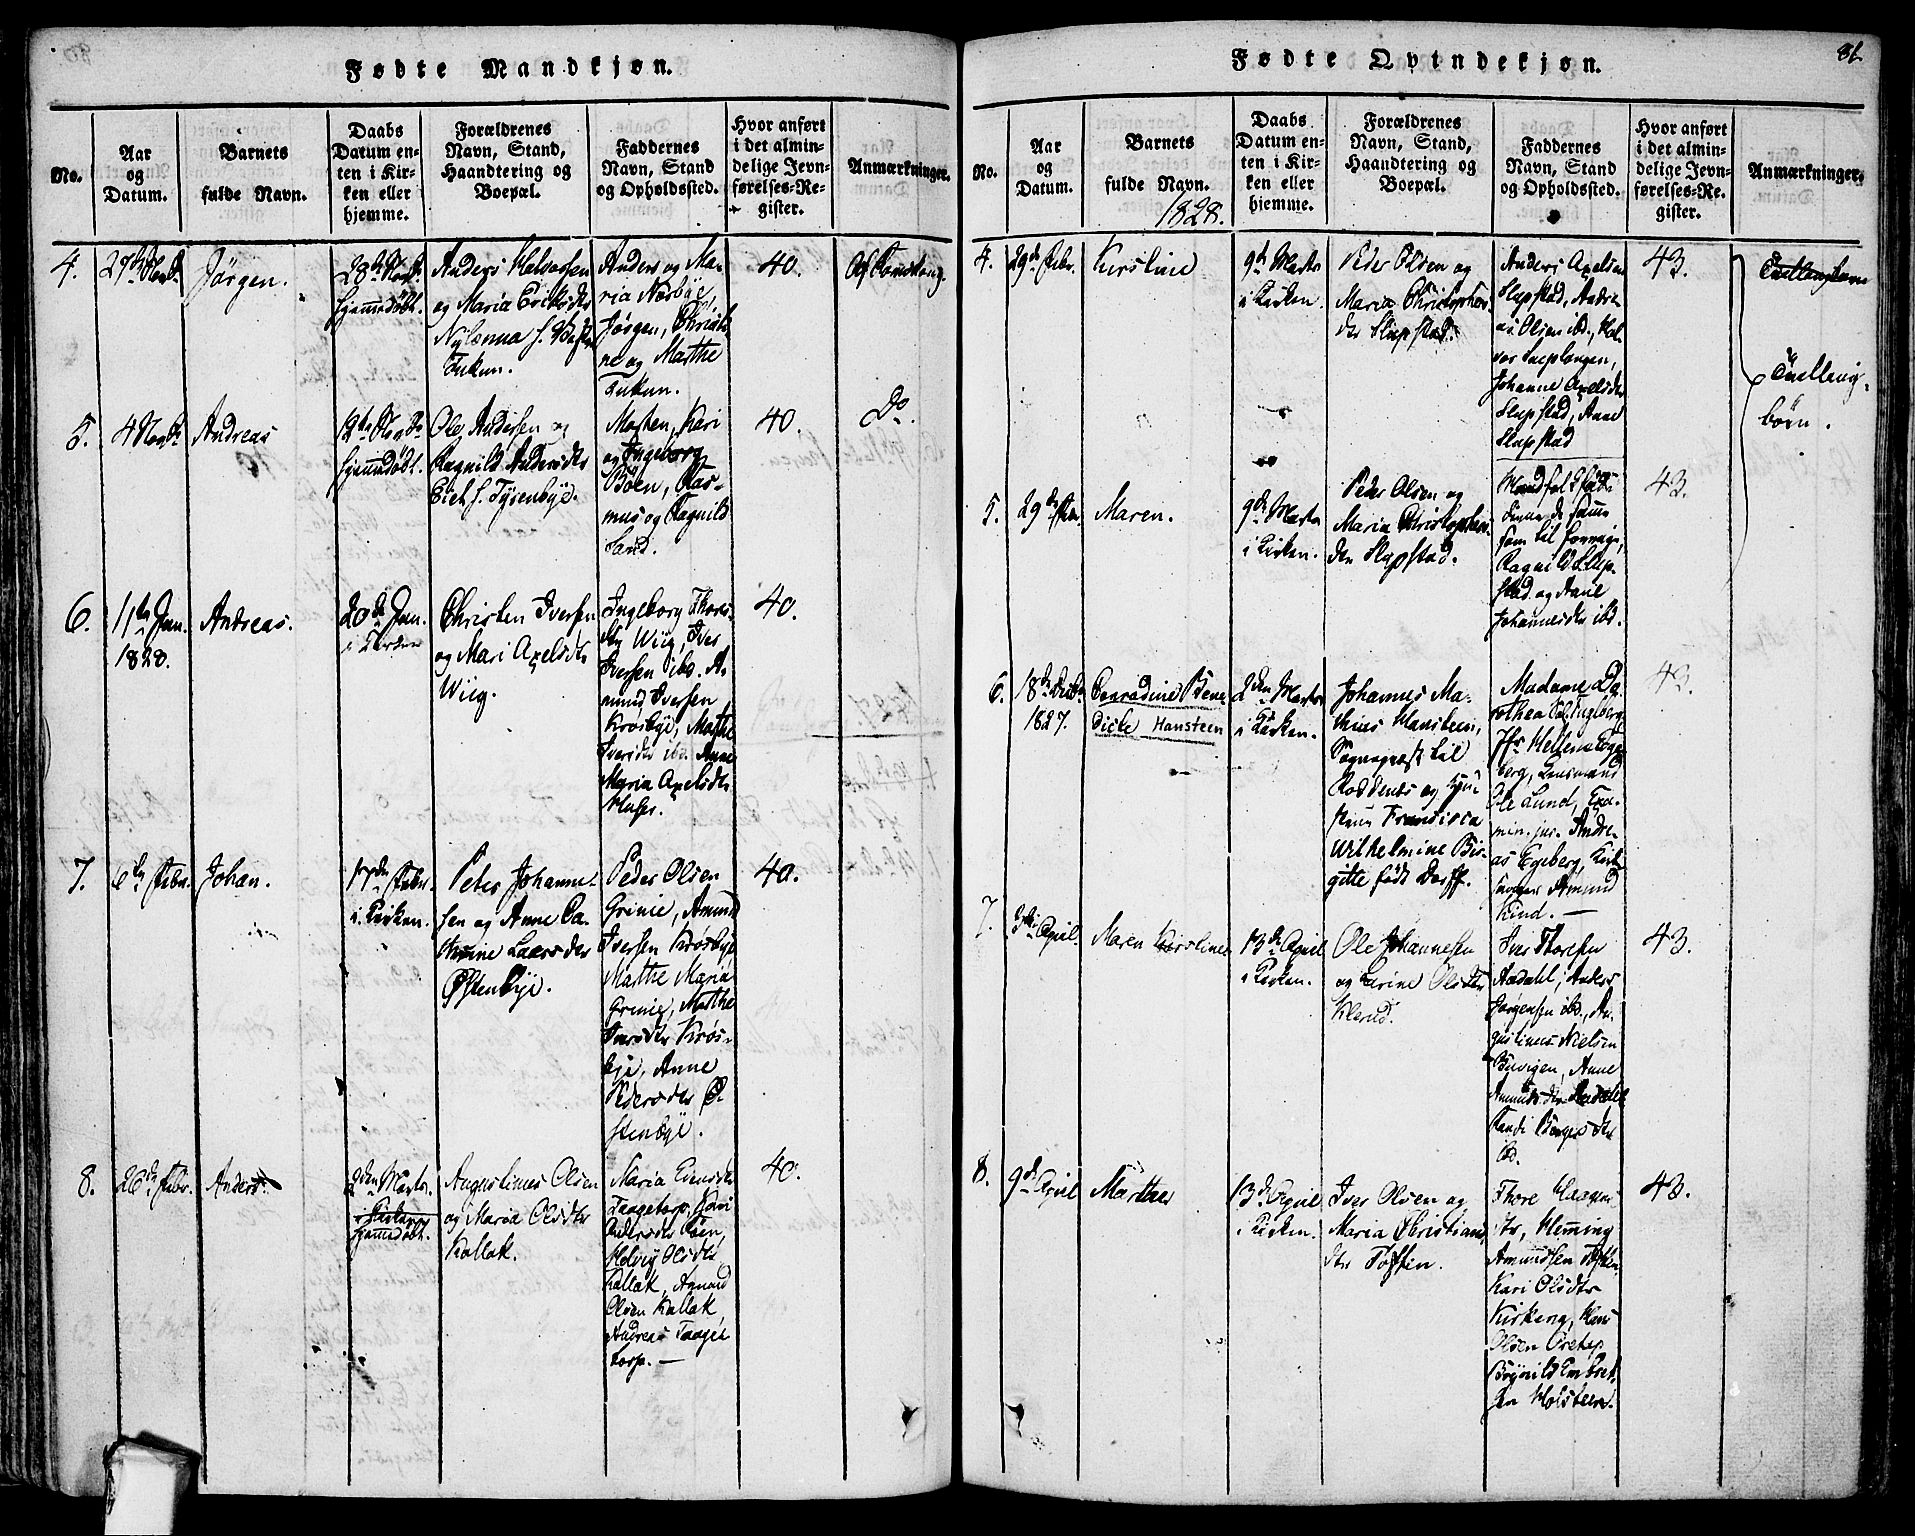 Fødte Mandkjøn.
No.
Aar
og
Datum.
Barnets
fulde Navn.
Daabs
Datum en-
ten i Kir-
ken eller
hjemme.
Forældrenes
Navn, Stand,
Haandtering og
Boepæl.
Faddernes
Navn, Stand
og Opholdssted.
Hvor anført
i det almin-
delige Jevn-
førelses-Re-
gister.
Anmærkninger.
4.
Jørgen.
28de
hjemmedøbt.
Anders Halvorsen
og Maria
Anders og Ma-
ria Næsbye,
Jørgen,
ne og Marthe
40.
5.
4
Andreas
12te
hjemmedøbt.
Ole Andersen og
Ragnild Andersdtr
Morten, Kari
og Ingeborg
Böen, Ras-
mus og Ragnild
Sand.
40.
Do.
6.
11te Jan.
1828.
Andreas.
20de Jan.
i Kirken
Christen Iversen
og Mari Axelsdtr
Wiig.
Ingeborg Thores-
Wiig, Iver
Iversen ibd. A-
mund Iversen
Krosbye, Marthe
Iversdtr ibd. Anne
Maria Axelsdtr
40.
7.
6te Febr.
Johan.
17de Febr.
i Kirken.
Peter Johanne-
sen og Anne Ca-
thrine Larsdtr
Østenbye.
Peder Olsen
Grinie, Amund
Iversen Krosbye
Marthe Maria
Grinie, Marthe
Iversdtr Krøs-
bye, Anne
Pedersdtr Ø-
stenbye.
40.
8.
26de Febr.
Anders.
2den Marts.
i Kirken
hjemmedøbt.
Augustinus Olsen
og Maria Olsdtr
Kallak.
Maria
Taagetorp, Kari
Böen,
Helvig Olsdtr
Kallak, Amund
Olsen Kallak
Andreas Taage-
torp. —
40.
Fødte Qvindekjøn.
81.
No.
Aar
og
Datum.
Barnets
fulde Navn.
1828.
Daabs
Datum en-
ten i Kir-
ken eller
hjemme.
Forældrenes
Navn, Stand,
Haandtering og
Boepæl.
Faddernes
Navn, Stand
og Opholdssted.
Hvor anført
i det almin-
delige Jevn-
førelses-Re-
gister.
Anmærkninger.
4.
29de Febr.
Kirstine
9de Marts
i Kirken.
Peder Olsen og
Maria Christophers
dtr Slupstad.
Anders Axelsen
Slupstad, Andre-
as Olsen ibd., Hal-
vor
Johanne Axelsdtr
Slupstad, Anne
Slupstad
43.
Tvillingbørn
Tvilling-
börn.
5.
29de Febr.
Maren.
9de Marts
i Kirken.
Peder Olsen og
Maria Christophers
dtr Slupstad.
de samme
som til forrige,
Ragnild Slup-
stad og Anne
Johannesdtr ibd.
43.
6.
18de Decbr.
1827.
Conradine Bene
dicte Hansteen
2den Marts
i Kirken.
Johannes Ma-
thias Hansteen,
Sognepræst til
Roddenes og Hu-
strue Francisca
Wilhelmine Bir-
gitte født Dorff.
Madame Do-
rothea
Jfr Hellene Egge-
berg, Lensmand
Ole Lund, Exa-
min. jur. Andre-
as Egeberg, Kirke-
sanger Amund
Kind. —
43.
7.
3die April.
Maren Kirstine
13de April
i Kirken.
Ole Johannesen
og Karine Olsdtr
Klerud.
Iver Thoresen
Aadahl, Anders
Jørgensen ibd., Au-
gustinus Nielsen
Buvigen, Anne
Amundsdtr Aadahl
Randi
ibd.
43.
8.
9de April
Marthe
13de April
i Kirken.
Iver Olsen og
Maria Christians
dtr Toften.
Thore Haagen-
str, Hemming
Amundsen Toften,
Kari Olsdtr
Kirkeng, Hans
Olsen
Holsteen.
43.